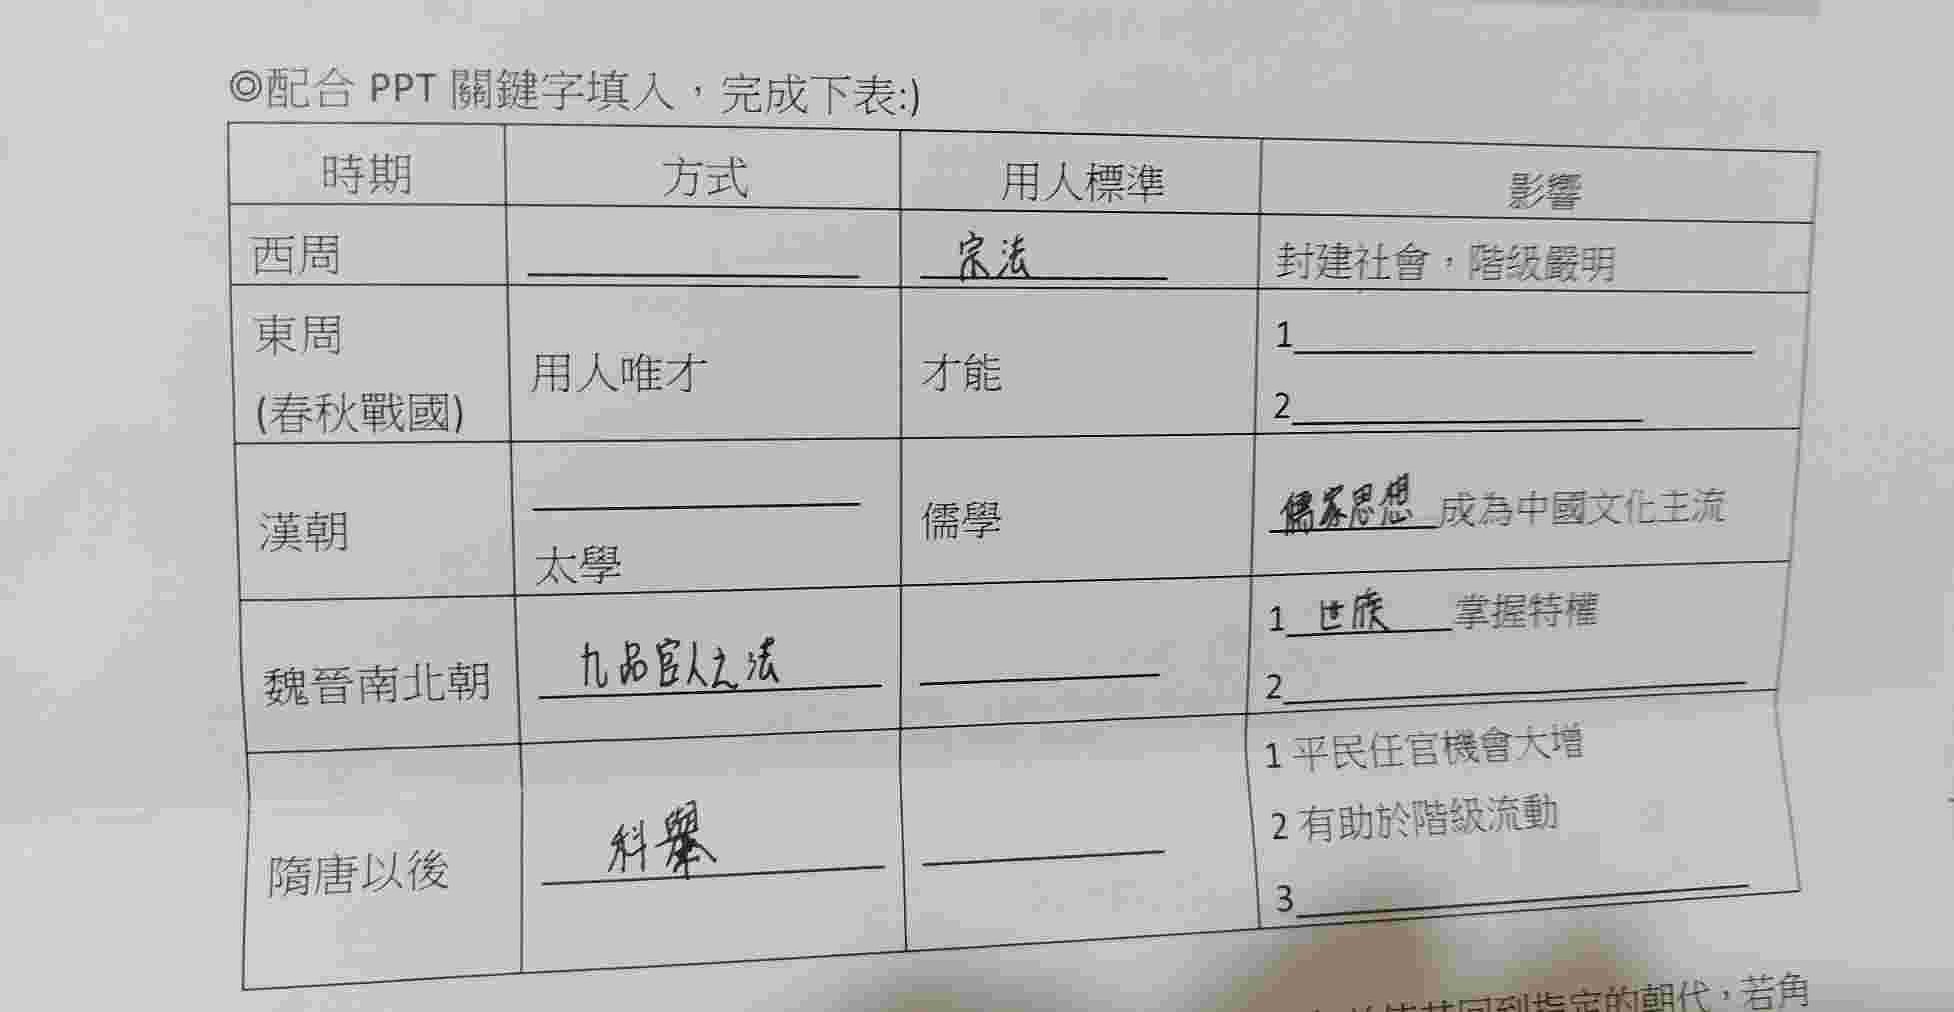 ◎配合 PPT 關鍵字填入，完成下表:)
時期 方式 用人標準 影響
西周 宗法 封建社會，階級嚴明
東周
(春秋戰國) 用人唯才 才能 1
2
漢朝 太學 儒學 儒家思想 成為中國文化主流
魏晉南北朝 九品官人之法 1 世族 掌握特權
2
隋唐以後 科舉 1 平民任官機會大增
2 有助於階級流動
3
回到指定的朝代，若角